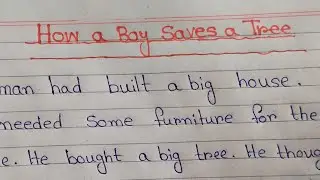 How a Boy Saves a Tree
man had built a big house.
needed some furniture for the
e. He bought a big tree. He thoug